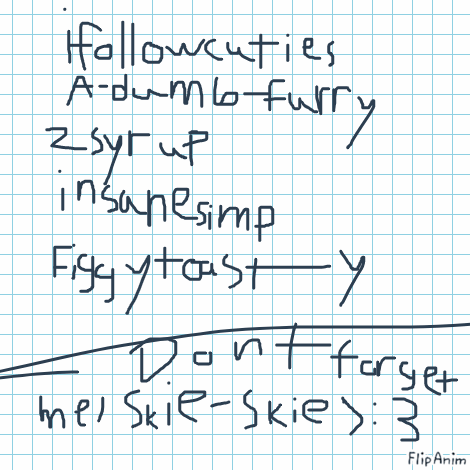 ifollowcuties
A-dumb-furry
zsyrup
insanesimp
Figgytoast—y
Dont forget
me, Skie-Skie >:3
FlipAnim